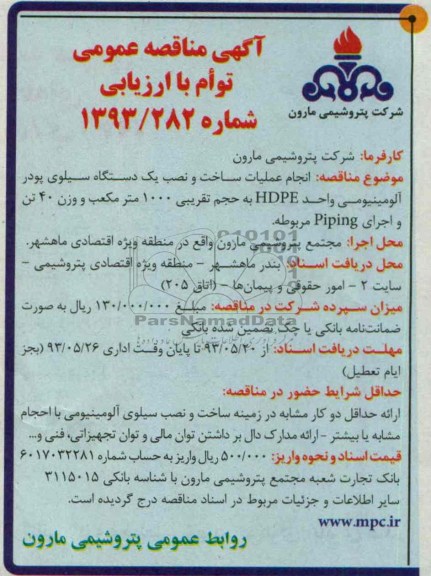 آگهی مناقصه عمومی
توأم با ارزیابی
شماره ۱۳۹۳/۲۸۲
شرکت پتروشیمی مارون
کارفرما: شرکت پتروشیمی مارون
موضوع مناقصه: انجام عملیات ساخت و نصب یک دستگاه سیلوی پودر
آلومینیومی واحد HDPE به حجم تقریبی ۱۰۰۰ متر مکعب و وزن ۴۰ تن
و اجرای Piping مربوطه.
محل اجرا: مجتمع پتروشیمی مارون واقع در منطقه ویژه اقتصادی ماهشهر.
محل دریافت اسناد: بندر ماهشهر - منطقه ویژه اقتصادی پتروشیمی -
سایت ۲ - امور حقوقی و پیمان‌ها - (اتاق ۲۰۵)
میزان سپرده شرکت در مناقصه: مبلغ ۱۳۰/۰۰۰/۰۰۰ ریال به صورت
ضمانت‌نامه بانکی یا چک تضمین شده بانکی
ParsNamadData
مهلت دریافت اسناد: از ۹۳/۰۵/۲۰ تا پایان وقت اداری ۹۳/۰۵/۲۶ (بجز
ایام تعطیل)
حداقل شرایط حضور در مناقصه:
ارائه حداقل دو کار مشابه در زمینه ساخت و نصب سیلوی آلومینیومی با احجام
مشابه یا بیشتر - ارائه مدارک دال بر داشتن توان مالی و توان تجهیزاتی، فنی و...
قیمت اسناد و نحوه واریز: ۵۰۰/۰۰۰ ریال واریز به حساب شماره ۶۰۱۷۰۳۲۲۸۱
بانک تجارت شعبه مجتمع پتروشیمی مارون با شناسه بانکی ۳۱۱۵۰۱۵
سایر اطلاعات و جزئیات مربوط در اسناد مناقصه درج گردیده است.
www.mpc.ir
روابط عمومی پتروشیمی مارون